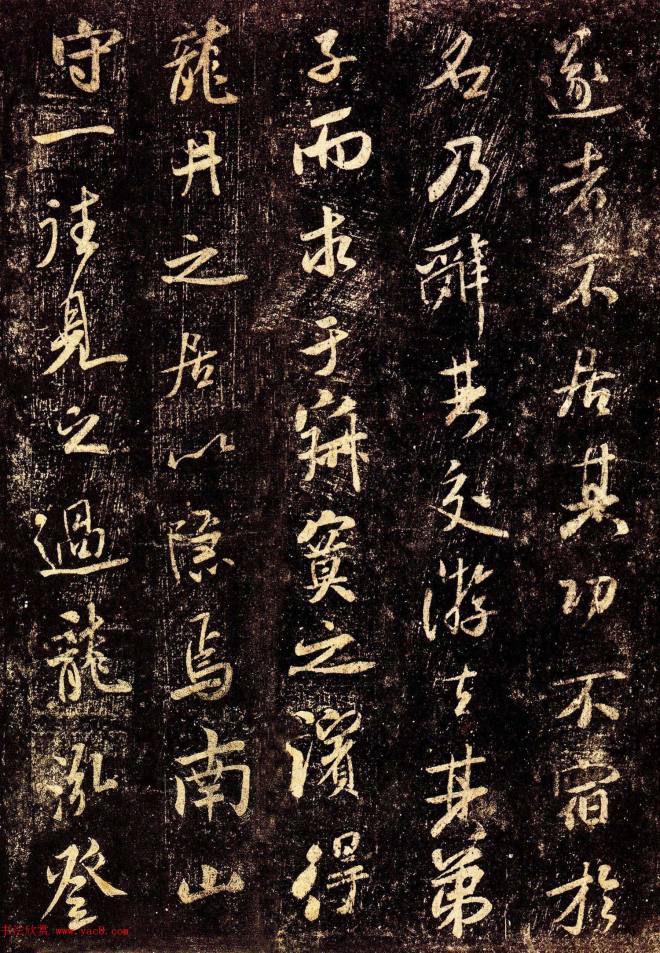 遂者不居其功不宿於
名乃辭其交游去其弟
子而求于寂寞之濱得
龍井之居以隱焉南山
守一往見之過龍泓登
书法欣赏 www.yac8.com